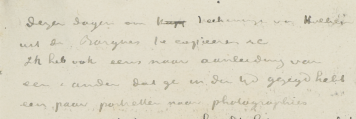 dezer dagen om teekeningen van
uit de Bargues te copieeren &c
Ik heb ook eens naar aanleiding van
een & ander dat ge in der tijd gezegd hebt
een paar portretten naar photographies